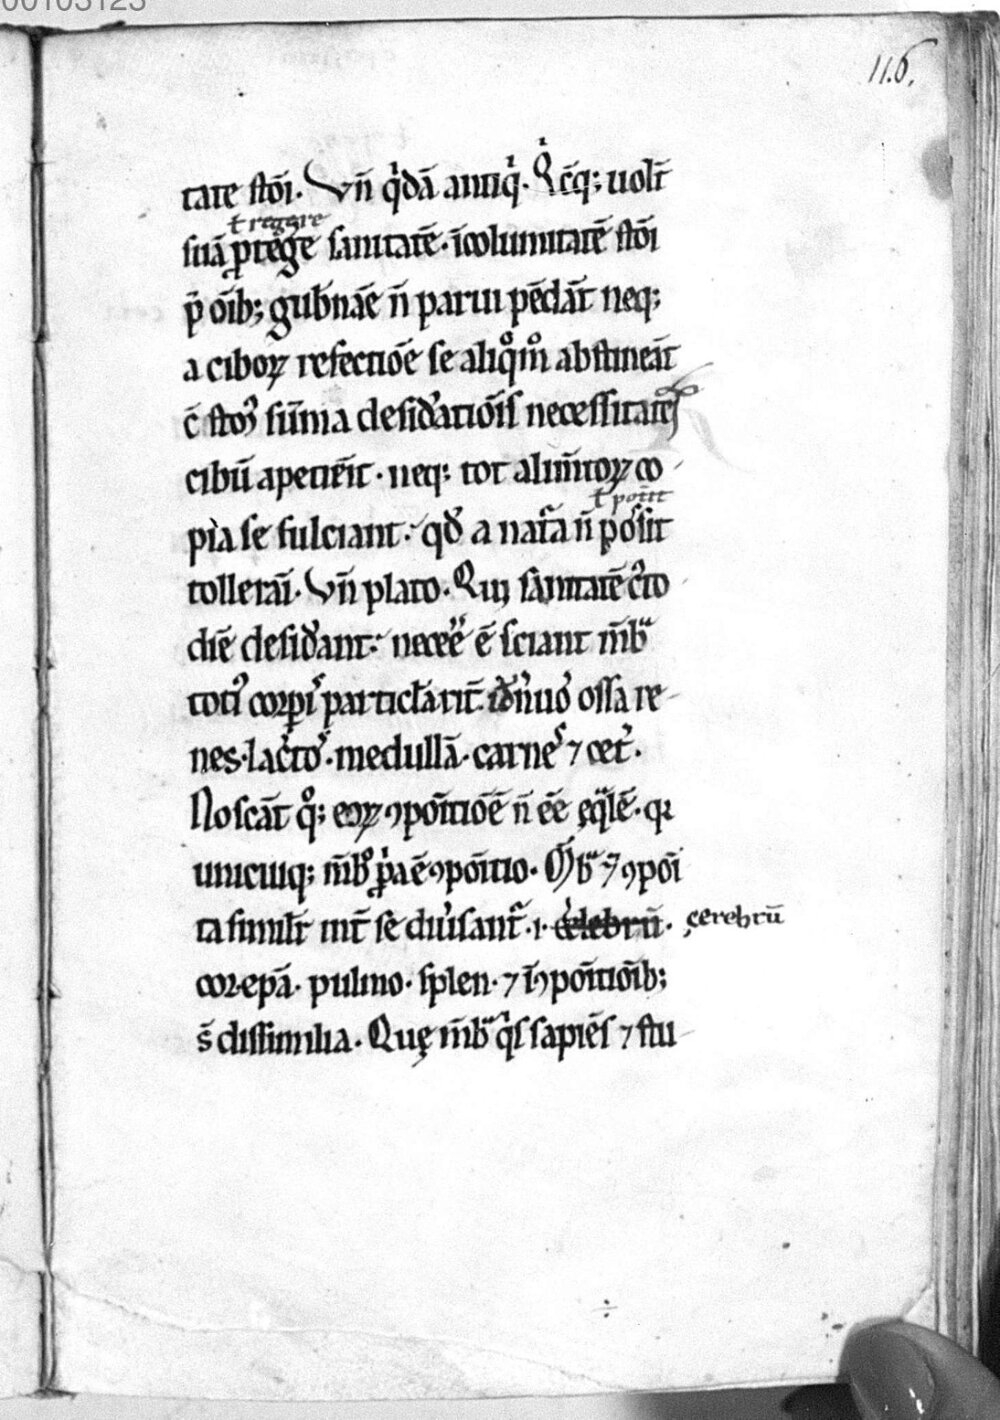 00103123
116.
tate stōi. Vn̄ q̇dā antiq̇. Q̇cq̄; uolt̄
ł regere
suā ꝓtege sanitatē. īcolumitatē stōi
p̄ oīb; gub̄nāe n̄ parui pēdāt neq;
a ciboꝝ refectiōe se aliqͦmͦ abstineāt
c̄ stoꝰ sūma desid̓atiōis necessitate
cibū apetier̄it. neq; tot alim̄toꝝ co
pia se fulciant. qđ a nat̄a n̄ possit
ł potit̄
tollerāi. Vn̄ plato. Qui sanitatē c̓to
diē desid̓ant. necēē ē sciant m̄bᵃ
totiꝰ corpīs particlatī. n̓uoꝰ ossa re
nes. lac̓toꝰ. medullā. carnes ⁊ cet̓.
Noscāt qͦ; eoꝝ ꝯpoītiōē n̄ ēē ęq̄lē. qꝛ
unicuiq; m̄bͦ ꝓp̓a ē ꝯpoītio. M̄bᵃ ⁊ ꝯpoī
ta simil̄r int̄ se diu̓sant̄. .i. celebrū. çerebrū
cor. epā. pulmo. splen. ⁊ ī ꝯpoītioīb;
s̄ dissimilia. Quę m̄bᵃ q̓s sapiēs ⁊ stu